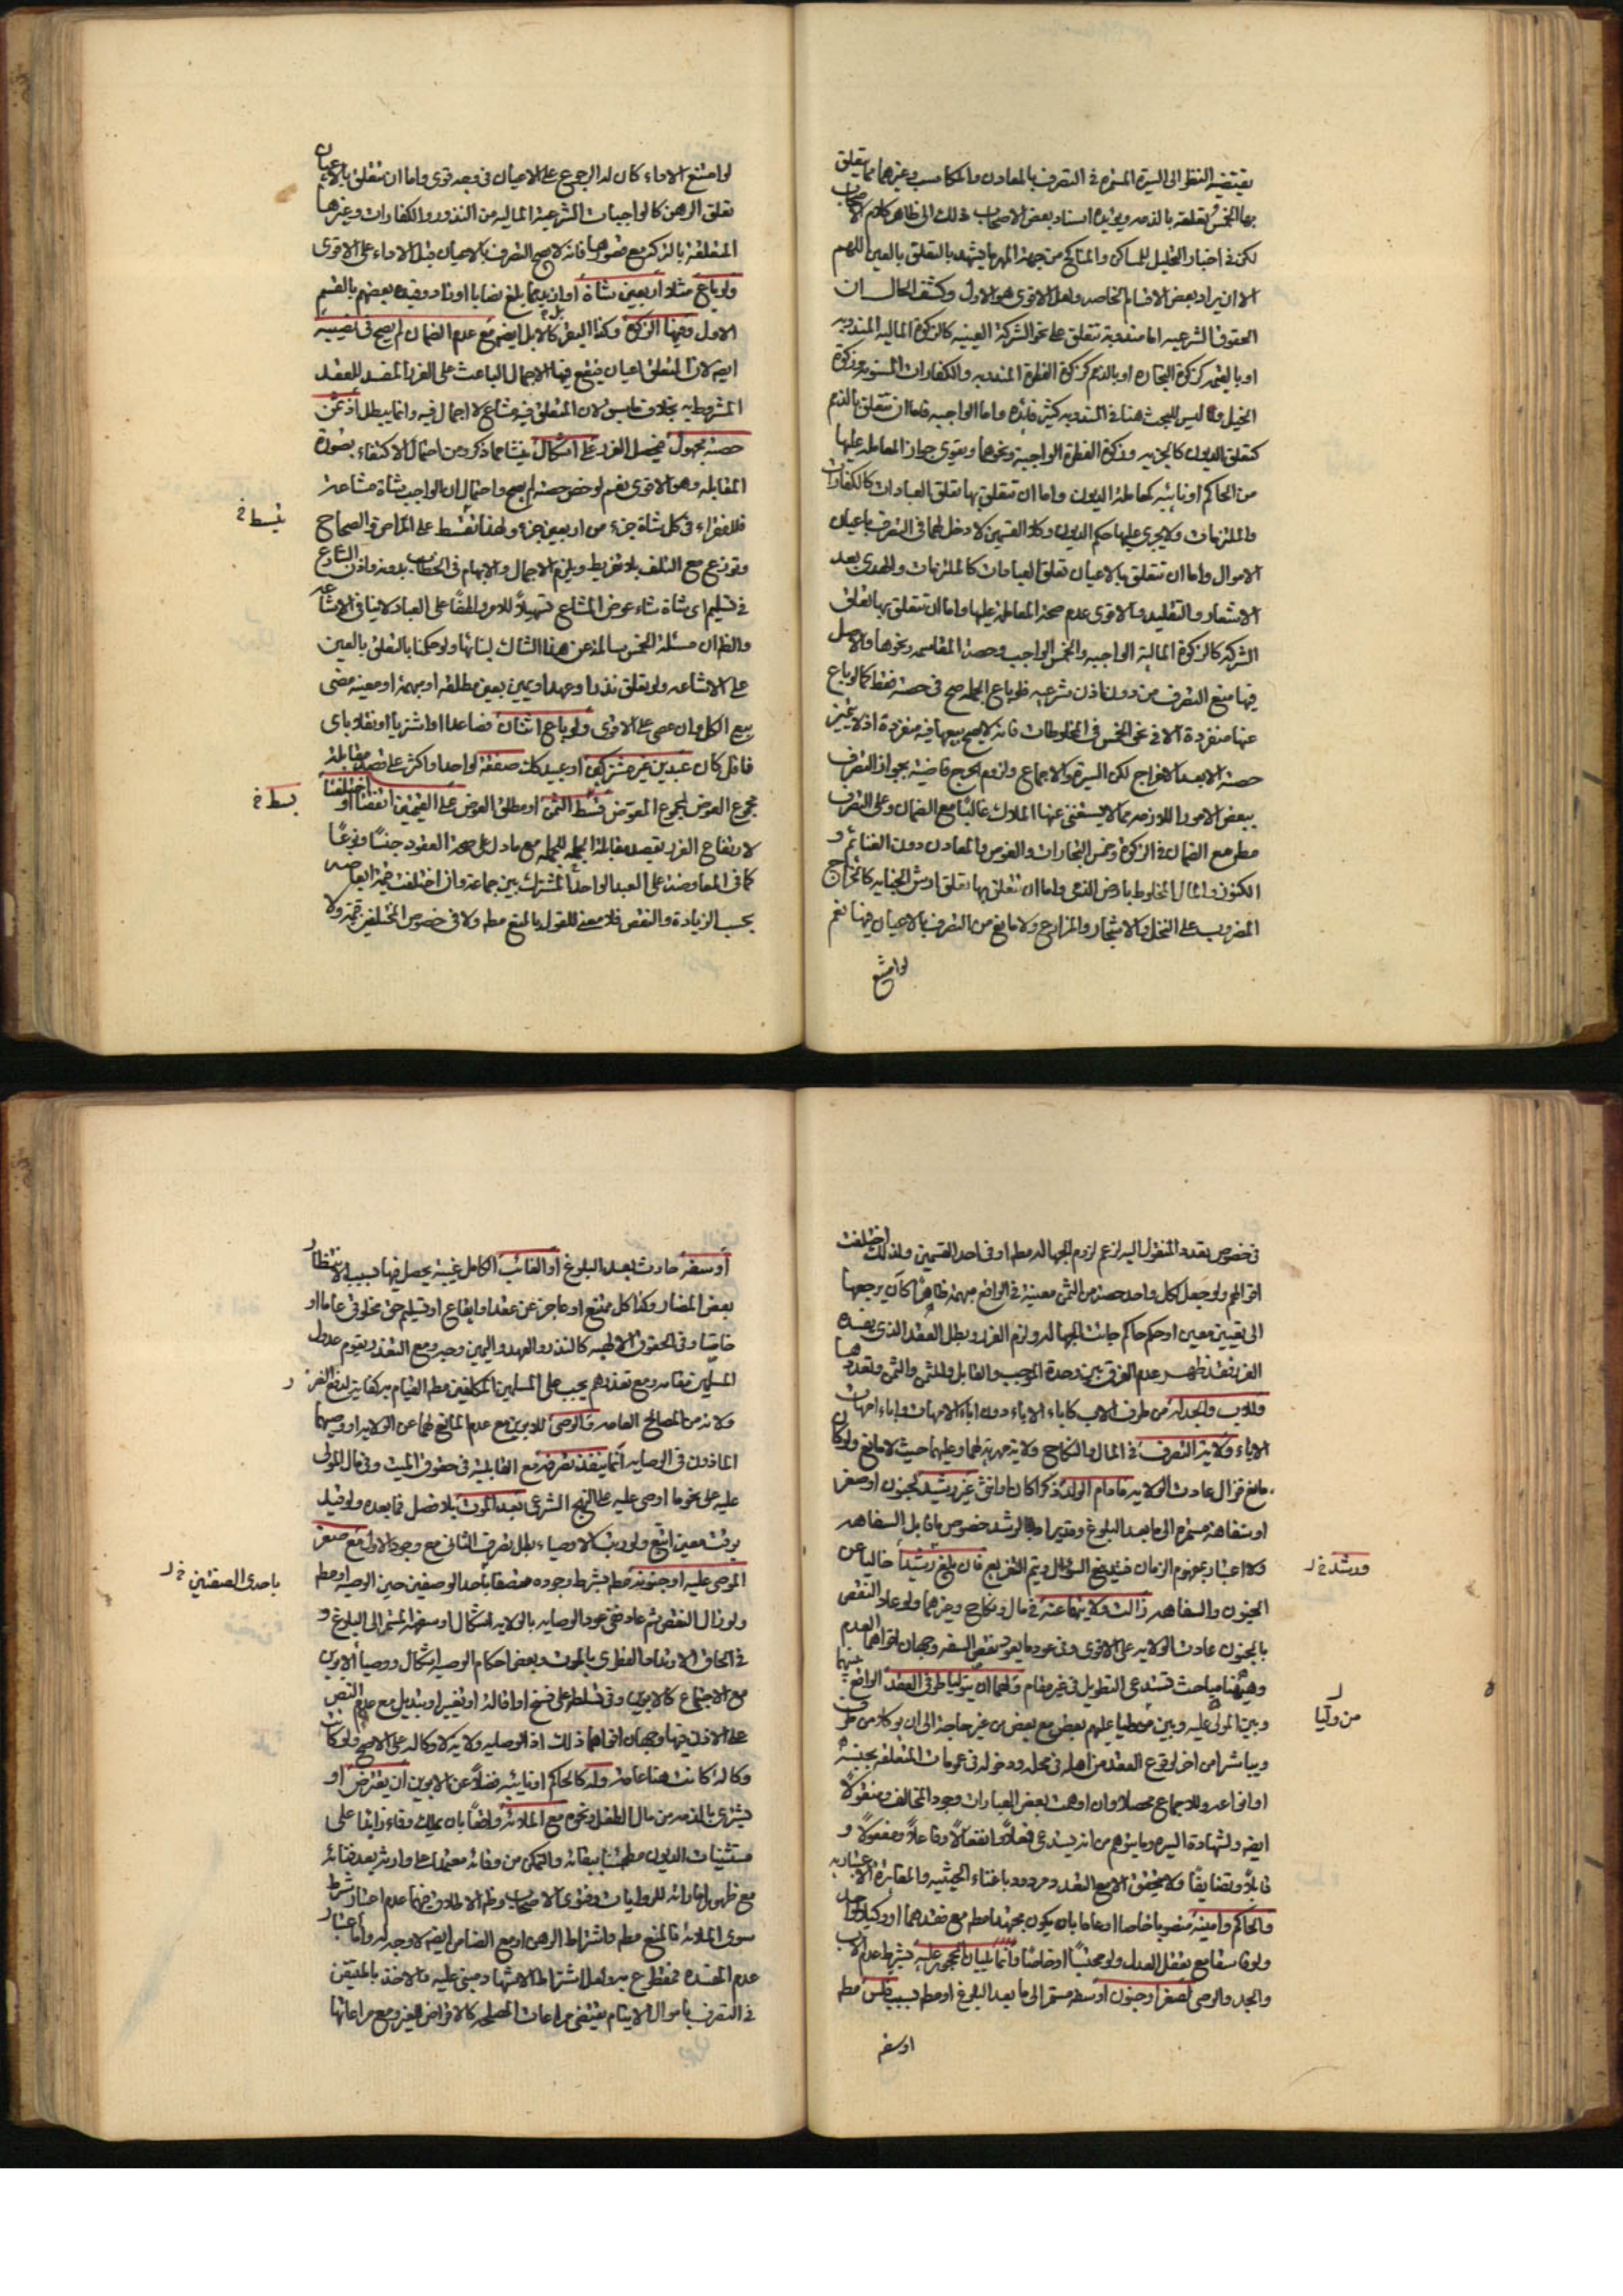 يقتضيه النظر الى السيرة المستمرة في التصرف بالمعادن والمكاسب وغيرهما مما يتعلق
بها الخمس تعلقه بالذمه ويؤيده اسناد بعض الاصحاب ذلك الى ظاهر كلام الاصحاب
لكن في اخبار التحليل للمساكن والمناكح من جهة المهر ما يشهد بالتعلق بالعين اللهم
الا ان يراد بعض الاقسام الخاصه ولعل الاقوى هو الاول وكشف الحال ان
الحقوق الشرعيه اما مندوبة تتعلق على نحو الشركة العينيه كالزكوة الماليه المندوبه
او بالقيمه كزكوة التجاره او بالذمم كزكوة الفطرة المندوبه والكفارات المسنونه وزكوة
الخيل وليس للبحث هنا في المندوبه كثير فائده واما الواجبه فاما ان تتعلق بالذمم
كتعلق الديون كالجزيه وزكوة الفطرة الواجبة ونحوهما ويقوى جواز المعامله عليها
من الحاكم او نائبه كمعاملة الديون واما ان تتعلق بها تعلق العبادات كالكفارات
والملتزمات ولا يجرى عليها حكم الديون وكلا القسمين لا دخل لهما في التصرف باعيان
الاموال واما ان تتعلق بالاعيان تعلق العبادات كالملتزمات والهدى بعد
الاشعار والتقليد والاقوى عدم صحة المعاملة عليها واما ان تتعلق بها تعلق
الشركه كالزكوة الماليه الواجبه والخمس الواجب وحصة المقاسمه ونحوها والاصل
فيها منع التصرف من دون اذن شرعيه فلو باع الجمله صح في حصته فقط كما لو باع
عنها منفردة الا في نحو الخمس في المخلوطات فانه لا يصح بيعها فيه منفردة اذ لا تتميز
حصته الا بعد الاخراج لكن السيرة والاجماع ولزوم الحرج قاضيه بجواز التصرف
ببعض الامور اللازمه مما لا يستغنى عنها الملاك غالبًا مع الضمان وعلى التصرف
مطم مع الضمان في الزكوة وخمس التجارات والغوص والمعادن دون الغنائم و
الكنوز والمال المخلوط بارض الذمى واما ان تتعلق بها تعلق ارش الجنايه كالخراج
المضروب على النخل والاشجار والمزارع ولا مانع من التصرف بالاعيان فيها نعم
لو امتنع
لو امتنع الاداء كان له الرجوع على الاعيان في وجه قوى واما ان تتعلق بالاعيان
تعلق الرهن كالواجبات الشرعية الماليه من النذور والكفارات وغيرها
المتعلقة بالتركه مع قصورها فانه لا يصح التصرف بالاعيان قبل الاداء على الاقوى
ولو باع مثلا اربعين شاة او ازيد مما بلغ نصابا او زاد وقيده بعضهم بالقسم
الاول وفيها الزكوة وكذا البقر كالابل ايضم مع عدم الضمان لم يصح في نصيبه
ايضه لان المتعلق اعيان فيقع فيها الاجمال الباعث على الغرر المفسد للعقد
المشروط به بخلاف ما سبق لان المتعلق فيه مشاع لا اجمال فيه وانما يبطل اذ ثمن
حصته مجهول فيحصل الغرر على اشكال ينشا مما ذكر ومن احتمال الاكتفاء بصورة
المقابله وهو الاقوى نعم لو خص حصته لم يصح واحتمال ان الواجب شاة مشاعة
فللفقراء في كل شاة جزء من اربعين جزء ولهذا تقسط على المراض والصحاح
وتوزع مع التلف بلا تفريط ويلزم الاجمال والابهام في الخطاب بدونه واذن الشارع
في تسليم اى شاة شاء عوض المشاع تسهيلاً للامر ولطفًا على العباد لا ينافي الاشاعه
والظ ان مسئلة الخمس سالمة عن هذا الشك لبنائها ولو حكمنا بالتعلق بالعين
على الاشاعه ولو تعلق نذر او عهد او يمين بعين مطلقة او مبهمة او معينه مضى
بيع الكل وان عصى على الاقوى ولو باع اثنان فصاعدا او اشتريا او نقلا باى
ناقل كان عبدين غير مشتركين او عبيد كك صفقة لواحد او اكثر على قصد مقابلة
مجموع العوض لمجموع المعوض قسط الثمن او مطلق العوض على القيمتين اتفقتا او اختلفتا
لارتفاع الغرر بقصد مقابلة الجمله للجمله مع ما دل على صحة العقود جنسًا ونوعًا
كما في المعاوضة على العبد الواحد المشترك بين جماعة وان اختلفت قيمة ابعاضه
بحسب الزيادة والنقص فلا معنى للقول بالمنع مطم ولا في خصوص المختلفين قيمة ولا
يقسط خ
بسط خ
في خصوص تعدد المنقول اليه لزعم لزوم الجهالة مطم او في احد القسمين ولذلك اختلفت
اقوالهم ولو جعل لكل واحد حصة من الثمن معينة في الواقع مبهمة ظاهرًا كان يرجعها
الى تعيين معين او حكم حاكم جائت الجهاله ولزم الغرر وبطل العقد الذى يفسده
الغرر فقد ظهر عدم الفرق بين وحدة الموجب والقابل والمثمن والثمن وتعددها
وللاب والجد له من طرف الاب كاباء الاباء دون اباء الامهات واباء امهات
الاباء ولاية التصرف في المال والنكاح ولاية جبريه لهما وعليهما حيث لا مانع ولو كان
مانع فزال عادت الولايه مادام الولد ذكرا كان او انثى غير رشيد لجنون او صغر
او سفاهة مستمره الى ما بعد البلوغ وقد يراد بالرشد خصوص ما قابل السفاهه
ولا اعتبار بمفهوم الزمان فيندفع السؤال ويتم التفريع فان بلغ رشيدا خاليا عن
الجنون والسفاهه زالت ولايتهما عنه في مال ونكاح وغيرهما ولو عاد النقص
بالجنون عادت الولايه على الاقوى وفي عودها بعود نقص السفه وجهان اقواهما العدم
وهيهنا مباحث تستدعى التطويل في غير مقام ولهما ان يتوليا طرفى العقد الواقع بينهما
وبين المولى عليه وبين من وليا عليهم بعض مع بعض من غير حاجة الى ان يوكلا من طرف
ويباشرا من اخر لوقوع العقد من اهله في محله ودخوله في عمومات المتعلقه بجنسه
او انواعه وللاجماع محصلا وان اوهمت بعض العبارات وجود المخالف ومنقولًا
ايضه ولشهادة السيره وما يتوهم من انه يستدعى فعلاً وانفعالًا وفاعلاً ومفعولًا و
قابلاً وتضايفًا ولا يتحقق الا مع التعدد مردود باغناء الحيثيه والمغايرة الاعتباريه
والحاكم وامينه منصوبا خاصا او عاما بان يكون مجتهدا مطم مع فقدهما او وكيلا لواحد
ولو فاسقا مع تعذر العدل ولو محتسبًا او خاصًا وانما يليان المحجور عليه بشرط عدم الاب
والجد والوصى لصغر او جنون او سفه مستمر الى ما بعد البلوغ او مطم بسبب فلس مطم
او سفه
ورشد خ ر
من وليا
او سفه حادث بعد البلوغ او الغائب الكامل غيبة يحصل فيها بسبب الانتظار
بعض المضار وكذا كل ممتنع او عاجز عن عقد او ايقاع او تسليم حق مخلوقى عاما او
خاصا وفي الحقوق الالهيه كالنذر والعهد واليمين وجه ومع التعذر يقوم عدول
المسلمين مقامه ومع تعذرهم يجب على المسلمين المكلفين مطم القيام به كفاية لدفع الضرر
ولانه من المصالح العامه والوصى للابوين مع عدم المانع لهما عن الولايه او وصيهما
الماذون في الوصايه انما ينفذ تصرفه مع القابلية في حقوق الميت وفي مال المولى
عليه على نحو ما اوصى عليه على النهج الشرعى بعد الموت بلا فصل فما بعده ولو قيد
بوقت معين اتبع ولو رتب الاوصياء بطل تصرف الثانى مع وجود الاول مع صغر
الموصى عليه او جنونه مطم بشرط وجوده متصفا باحد الوصفين حين الوصيه او مطم
ولو زال النقص ثم عاد ففى عود الوصايه بالولايه اشكال او سفهه المستمر الى البلوغ و
في الحاق الارتداد الفطرى بالموت وبعض احكام الوصيه اشكال ووصيا الابوين
مع الاجتماع كالابوين وفي تسلطه على فسخ او اقاله او تغيير او تبديل مع عدم النص
على الاذن فيها وجهان اقواهما ذلك اذ الوصايه ولايه لا وكاله على الاصح ولو كانت
وكالة كانت هنا عامة وله كالحاكم او نائبه فضلاً عن الابوين ان يقترض او
يشترى بالذمه من مال الطفل ونحوه مع الملائة واضعا بان يملك وفاء زايدا على
مستثنيات الديون مطمئنا ببقائه والتمكن من وفائه معتمدا على وارثه بعد فنائه
مع ظهور امارات للروايات وفتوى الاصحاب وظم الاطلاق فيهما عدم اعتبار شرط
سوى الملائة فالمنع مطم واشتراط الرهن او مع الضامن ايضه لا وجه له واما اعتبار
عدم المفسده فمقطوع به ولعل اشتراط الاشهاد مبنى عليه والاخذ بالمتيقن
في التصرف باموال الايتام يقتضى مراعات المصلحه كالاقراض للغير ومع مراعاتها
باحدى الصفتين خ ر